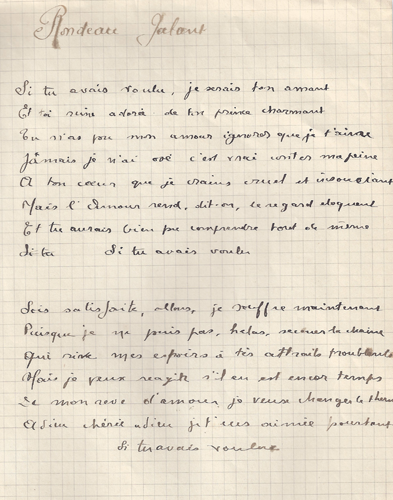 Rondeau Galant
Si tu avais voulu, je serais ton amant
Et toi reine adorée de ton prince charmant
Tu n'as pu mon amour ignorer que je t'aime
Jamais je n'ai osé c'est vrai conter ma peine
A ton cœur que je crains cruel et insouciant
Mais l'Amour rend, dit-on, le regard eloquent
Et tu aurais bien pu comprendre tout de même
Si tu Si tu avais voulu
Sois satisfaite, allons, je souffre maintenant
Puisque je ne puis pas, helas, secouer la chaine
Qui rive mes espoirs à tes attraits troublants
Mais je veux reagir s'il en est encor temps
De mon reve d'amour je veux changer le theme
Adieu chérie adieu je t'ai aimée pourtant
Si tu avais voulu